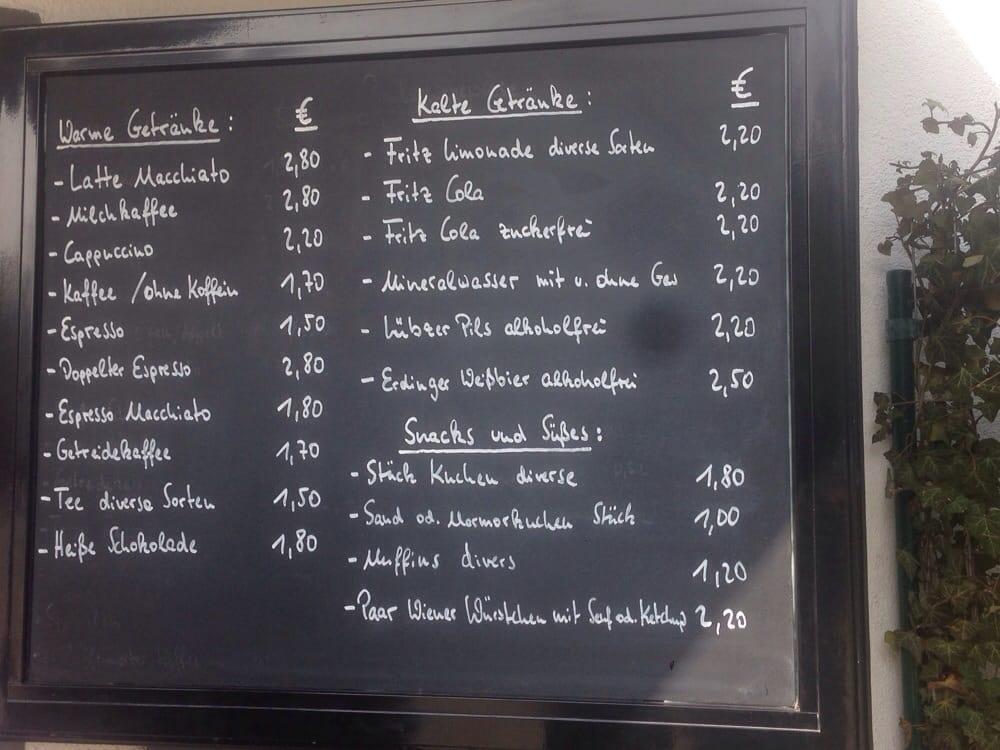 Warme Getränke: €
- Latte Macchiato 2,80
- Milchkaffee 2,80
- Cappuccino 2,20
- Kaffee /ohne Koffein 1,70
- Espresso 1,50
- Doppelter Espresso 2,80
- Espresso Macchiato 1,80
- Getreidekaffee 1,70
- Tee diverse Sorten 1,50
- Heiße Schokolade 1,80
Kalte Getränke: €
- Fritz Limonade diverse Sorten 2,20
- Fritz Cola 2,20
- Fritz Cola zuckerfrei 2,20
- Mineralwasser mit u. ohne Gas 2,20
- Lübzer Pils alkoholfrei 2,20
- Erdinger Weißbier alkoholfrei 2,50
Snacks und Süßes:
- Stück Kuchen diverse 1,80
- Sand od. Marmorkuchen Stück 1,00
- Muffins divers 1,20
- Paar Wiener Würstchen mit Senf od. Ketchup 2,20